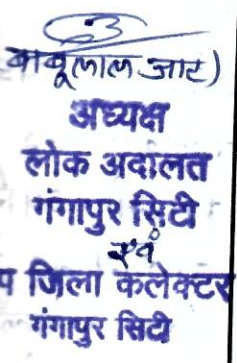 बाबूलाल जाट)
अध्यक्ष
लोक अदालत
गंगापुर सिटी
एवं
प जिला कलेक्टर
गंगापुर सिटी